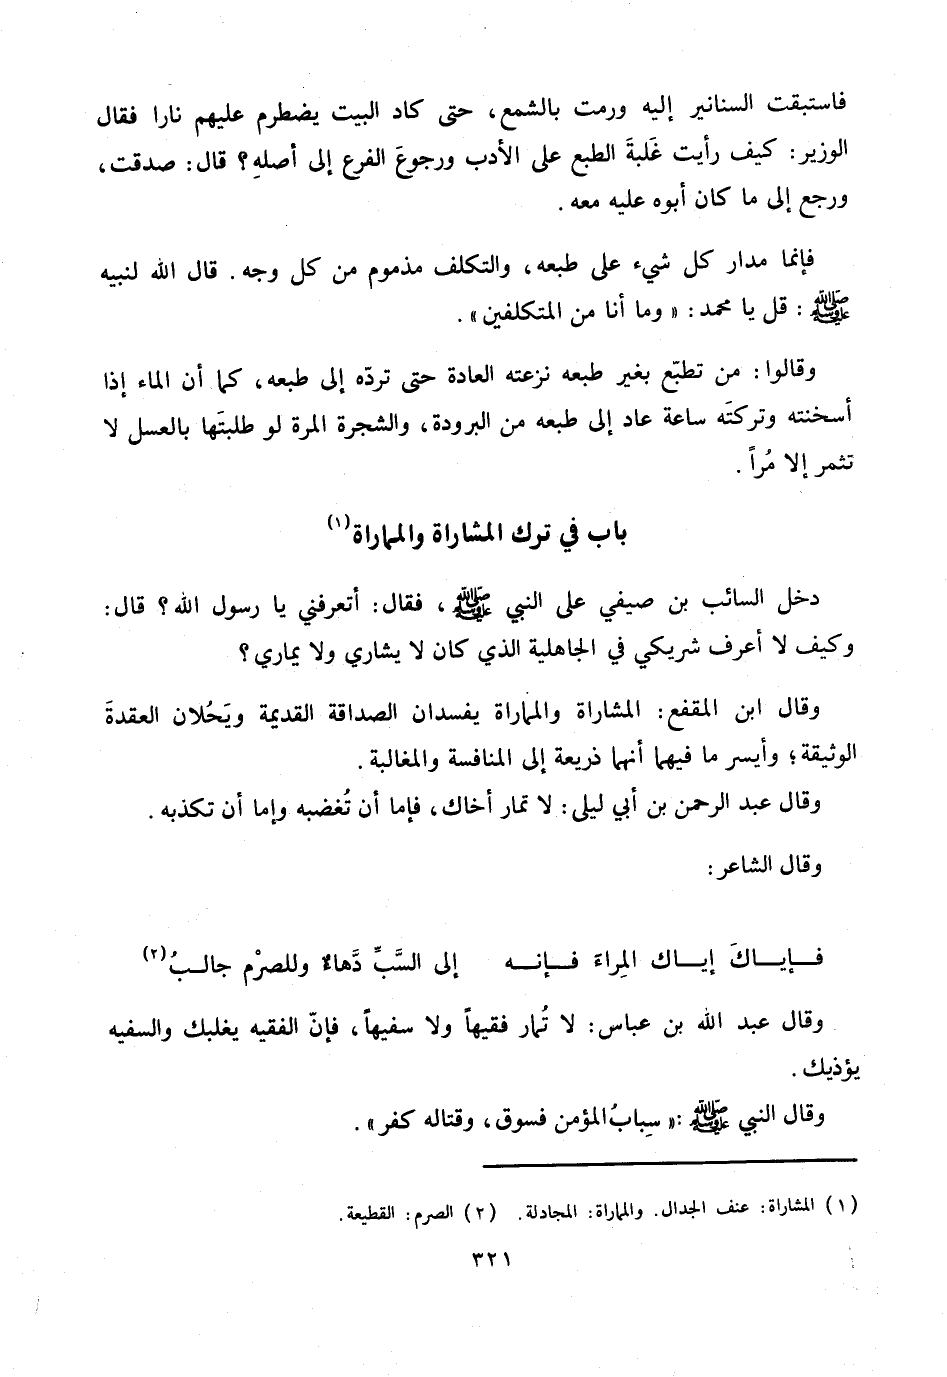 فاستبقت السنانير إليه ورمت بالشمع، حتى كاد البيت يضطرم عليهم نارا فقال
الوزير: كيف رأيت غَلبةَ الطبع على الأدب ورجوعَ الفرع إلى أصلهِ؟ قال: صدقت،
ورجع إلى ما كان أبوه عليه معه.
فإنما مدار كل شيء على طبعه، والتكلف مذموم من كل وجه. قال الله لنبيه
ﷺ: قل يا محمد: «وما أنا من المتكلفين».
وقالوا: من تطبّع بغير طبعه نزعته العادة حتى تردّه إلى طبعه، كما أن الماء إذا
أسخنته وتركتَه ساعة عاد إلى طبعه من البرودة، والشجرة المرة لو طلبتَها بالعسل لا
تثمر إلا مُراً.
باب في ترك المشاراة والمماراة(١)
دخل السائب بن صيفي على النبي ﷺ، فقال: أتعرفني يا رسول الله؟ قال:
وكيف لا أعرف شريكي في الجاهلية الذي كان لا يشاري ولا يماري؟
وقال ابن المقفع: المشاراة والمماراة يفسدان الصداقة القديمة ويَحُلان العقدةَ
الوثيقة؛ وأيسر ما فيهما أنهما ذريعة إلى المنافسة والمغالبة.
وقال عبد الرحمن بن أبي ليلى: لا تمار أخاك، فإما أن تُغضبه وإما أن تكذبه.
وقال الشاعر:
فـإيـاكَ إيـاك المِراءَ فـإنـه إلى السَّبِّ دَّهاءٌ وللصرْم جالبُ(٢)
وقال عبد الله بن عباس: لا تُمار فقيهاً ولا سفيهاً، فإنّ الفقيه يغلبك والسفيه
يؤذيك.
وقال النبي ﷺ: «سِبابُ المؤمن فسوق، وقتاله كفر».
(١) المشاراة: عنف الجدال. والمماراة: المجادلة. (٢) الصرم: القطيعة.
٣٢١